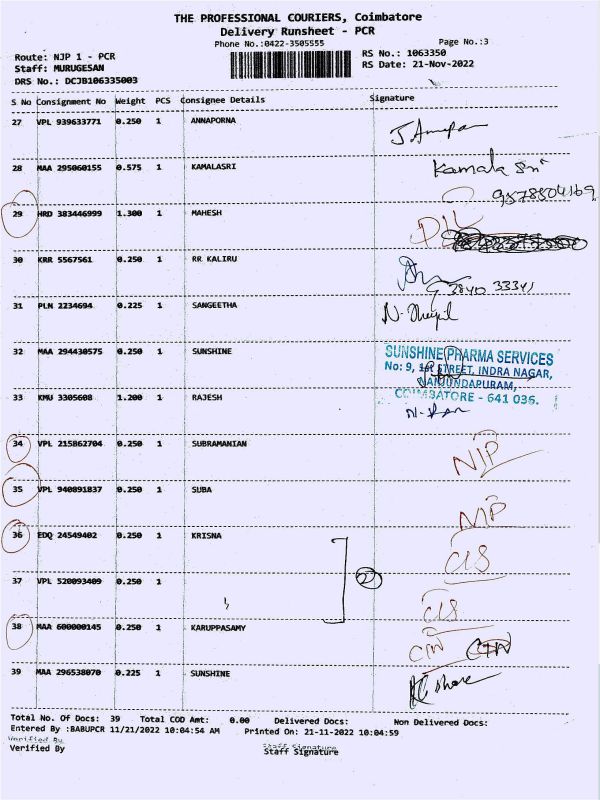 THE PROFESSIONAL COURIERS, Coimbatore
Delivery Runsheet - PCR
Phone No.:0422-3505555 Page No.:3
Route: NJP 1 - PCR RS No.: 1063350
Staff: MURUGESAN RS Date: 21-Nov-2022
DRS No.: DCJB106335003
S No Consignment No Weight PCS Consignee Details Signature
27 VPL 939633771 0.250 1 ANNAPORNA
28 MAA 295060155 0.575 1 KAMALASRI Kamala Sri
9578504169
29 HRD 383446999 1.300 1 MAHESH
30 KRR 5567561 0.250 1 RR KALIRU
31 PLN 2234694 0.225 1 SANGEETHA
32 MAA 294430575 0.250 1 SUNSHINE SUNSHINE PHARMA SERVICES
No: 9, 1st STREET, INDRA NAGAR,
NANJUNDAPURAM,
33 KMU 3305608 1.200 1 RAJESH COIMBATORE - 641 036.
34 VPL 215862704 0.250 1 SUBRAMANIAN NIP
35 VPL 940891837 0.250 1 SUBA NIP
36 EDQ 24549402 0.250 1 KRISNA CLS
37 VPL 520093409 0.250 1 2 CLS
38 MAA 600000145 0.250 1 KARUPPASAMY CTN CTN
39 MAA 296538070 0.225 1 SUNSHINE
Total No. Of Docs: 39 Total COD Amt: 0.00 Delivered Docs: Non Delivered Docs:
Entered By :BABUPCR 11/21/2022 10:04:54 AM Printed On: 21-11-2022 10:04:59
Verified By Staff Signature
Verified By Staff Signature